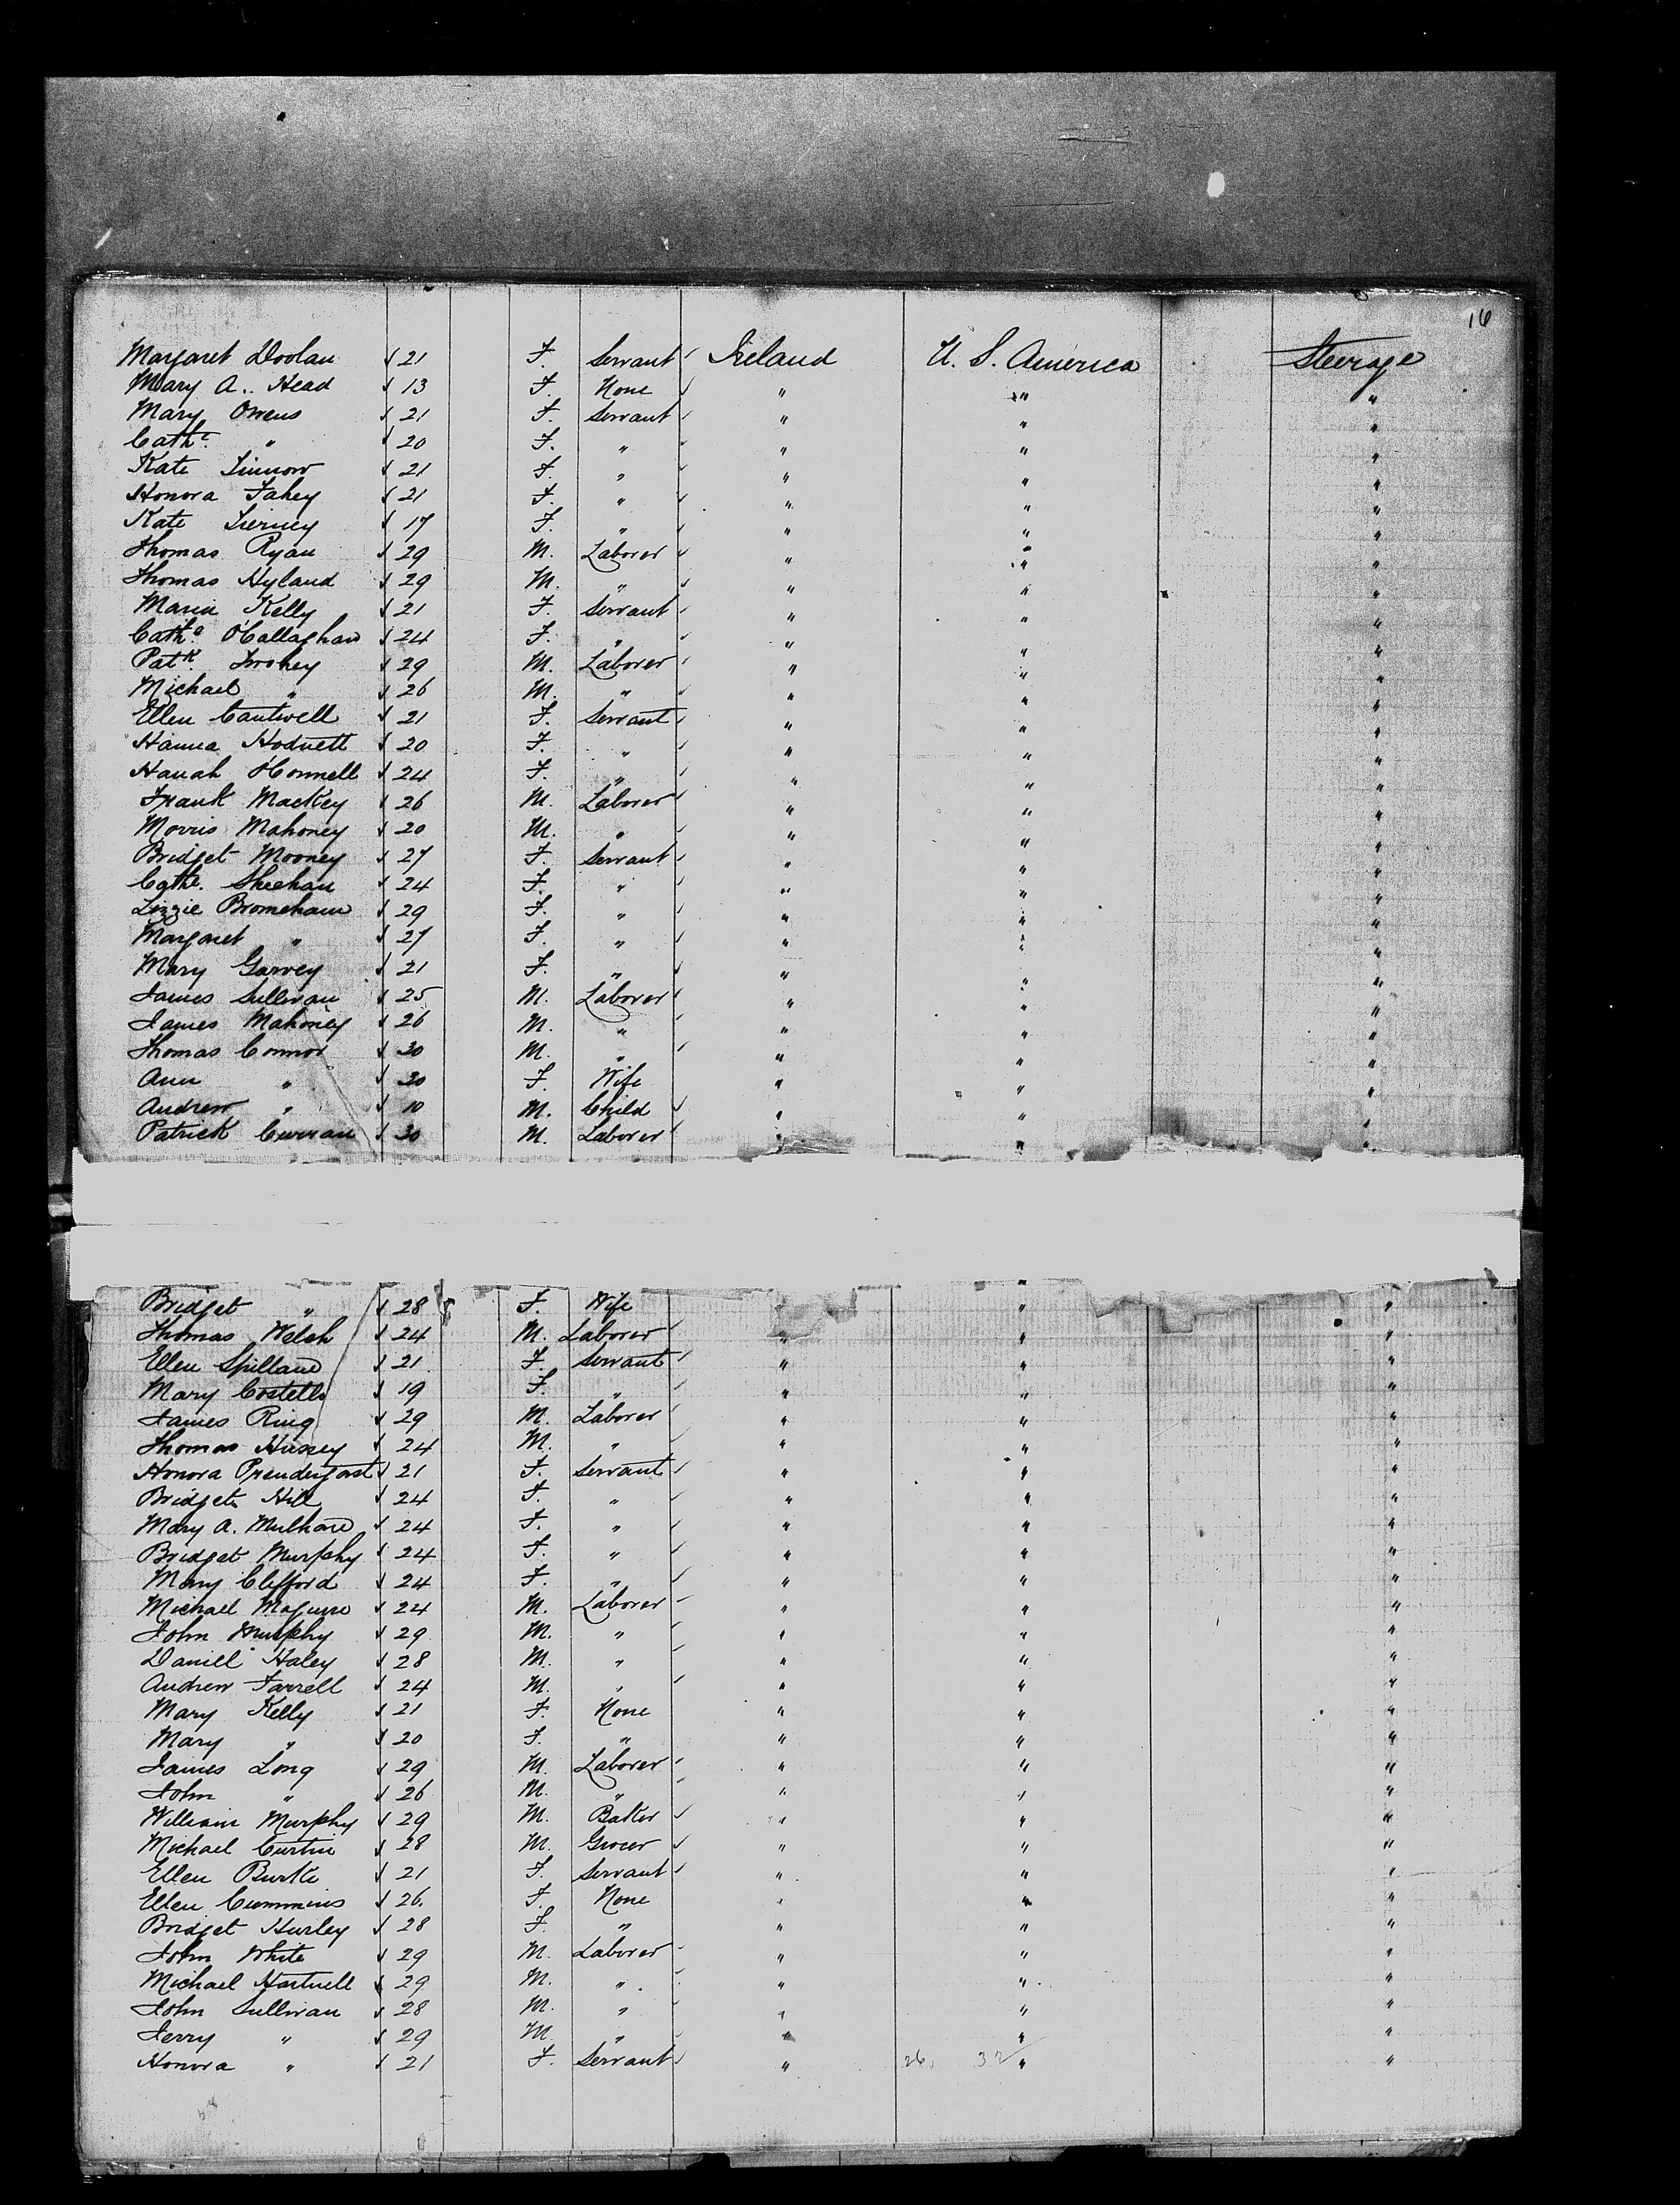 16
Margaret Doolan 21 F. Servant Ireland U. S. America Steerage
Mary A. Head 13 F. None " " "
Mary Owens 21 F. Servant " " "
Cathe. " 20 F. " " " "
Kate 21 F. " " " "
Honora Fahey 21 F. " " " "
Kate Tierney 17 F. " " " "
Thomas Ryan 29 M. Laborer " " "
Thomas Hyland 29 M. " " " "
Maria Kelly 21 F. Servant " " "
Cathe. O'Callaghan 24 F. " " " "
Patk. Twohey 29 M. Laborer " " "
Michael " 26 M. " " " "
Ellen Cantwell 21 F. Servant " " "
Hanna Hodnett 20 F. " " " "
Hanah O'Connell 24 F. " " " "
Frank Mackey 26 M. Laborer " " "
Morris Mahoney 20 M. " " " "
Bridget Mooney 27 F. Servant " " "
Cathe. Sheehan 24 F. " " " "
Lizzie Bromeham 29 F. " " " "
Margaret " 27 F. " " " "
Mary Garvey 21 F. " " " "
James Sullivan 25 M. Laborer " " "
James Mahoney 26 M. " " " "
Thomas Connor 30 M. " " " "
Ann " 30 F. Wife " " "
Andrew " 10 M. Child " " "
Patrick Curran 30 M. Laborer " " "
Bridget " 28 F. Wife " "
Thomas Welsh 24 M. Laborer " " "
Ellen Spillane 21 F. Servant " " "
Mary Costello 19 F. " " " "
James Ring 29 M. Laborer " " "
Thomas Hussey 24 M. " " " "
Honora Prendergast 21 F. Servant " " "
Bridget Hill 24 F. " " " "
Mary A. Mulhare 24 F. " " " "
Bridget Murphy 24 F. " " " "
Mary Clifford 24 F. " " " "
Michael Maguire 24 M. Laborer " " "
John Murphy 29 M. " " " "
Daniel Haley 28 M. " " " "
Andrew Farrell 24 M. " " " "
Mary Kelly 21 F. None " " "
Mary " 20 F. " " " "
James Long 29 M. Laborer " " "
John " 26 M. " " " "
William Murphy 29 M. Baker " " "
Michael Curtin 28 M. Grocer " " "
Ellen Burke 21 F. Servant " " "
Ellen Cummins 26 F. None " " "
Bridget Hurley 28 F. " " " "
John White 29 M. Laborer " " "
Michael Hartnell 29 M. " " " "
John Sullivan 28 M. " " " "
Jerry " 29 M. " " " "
Honora " 21 F. Servant " 26. 32 " "